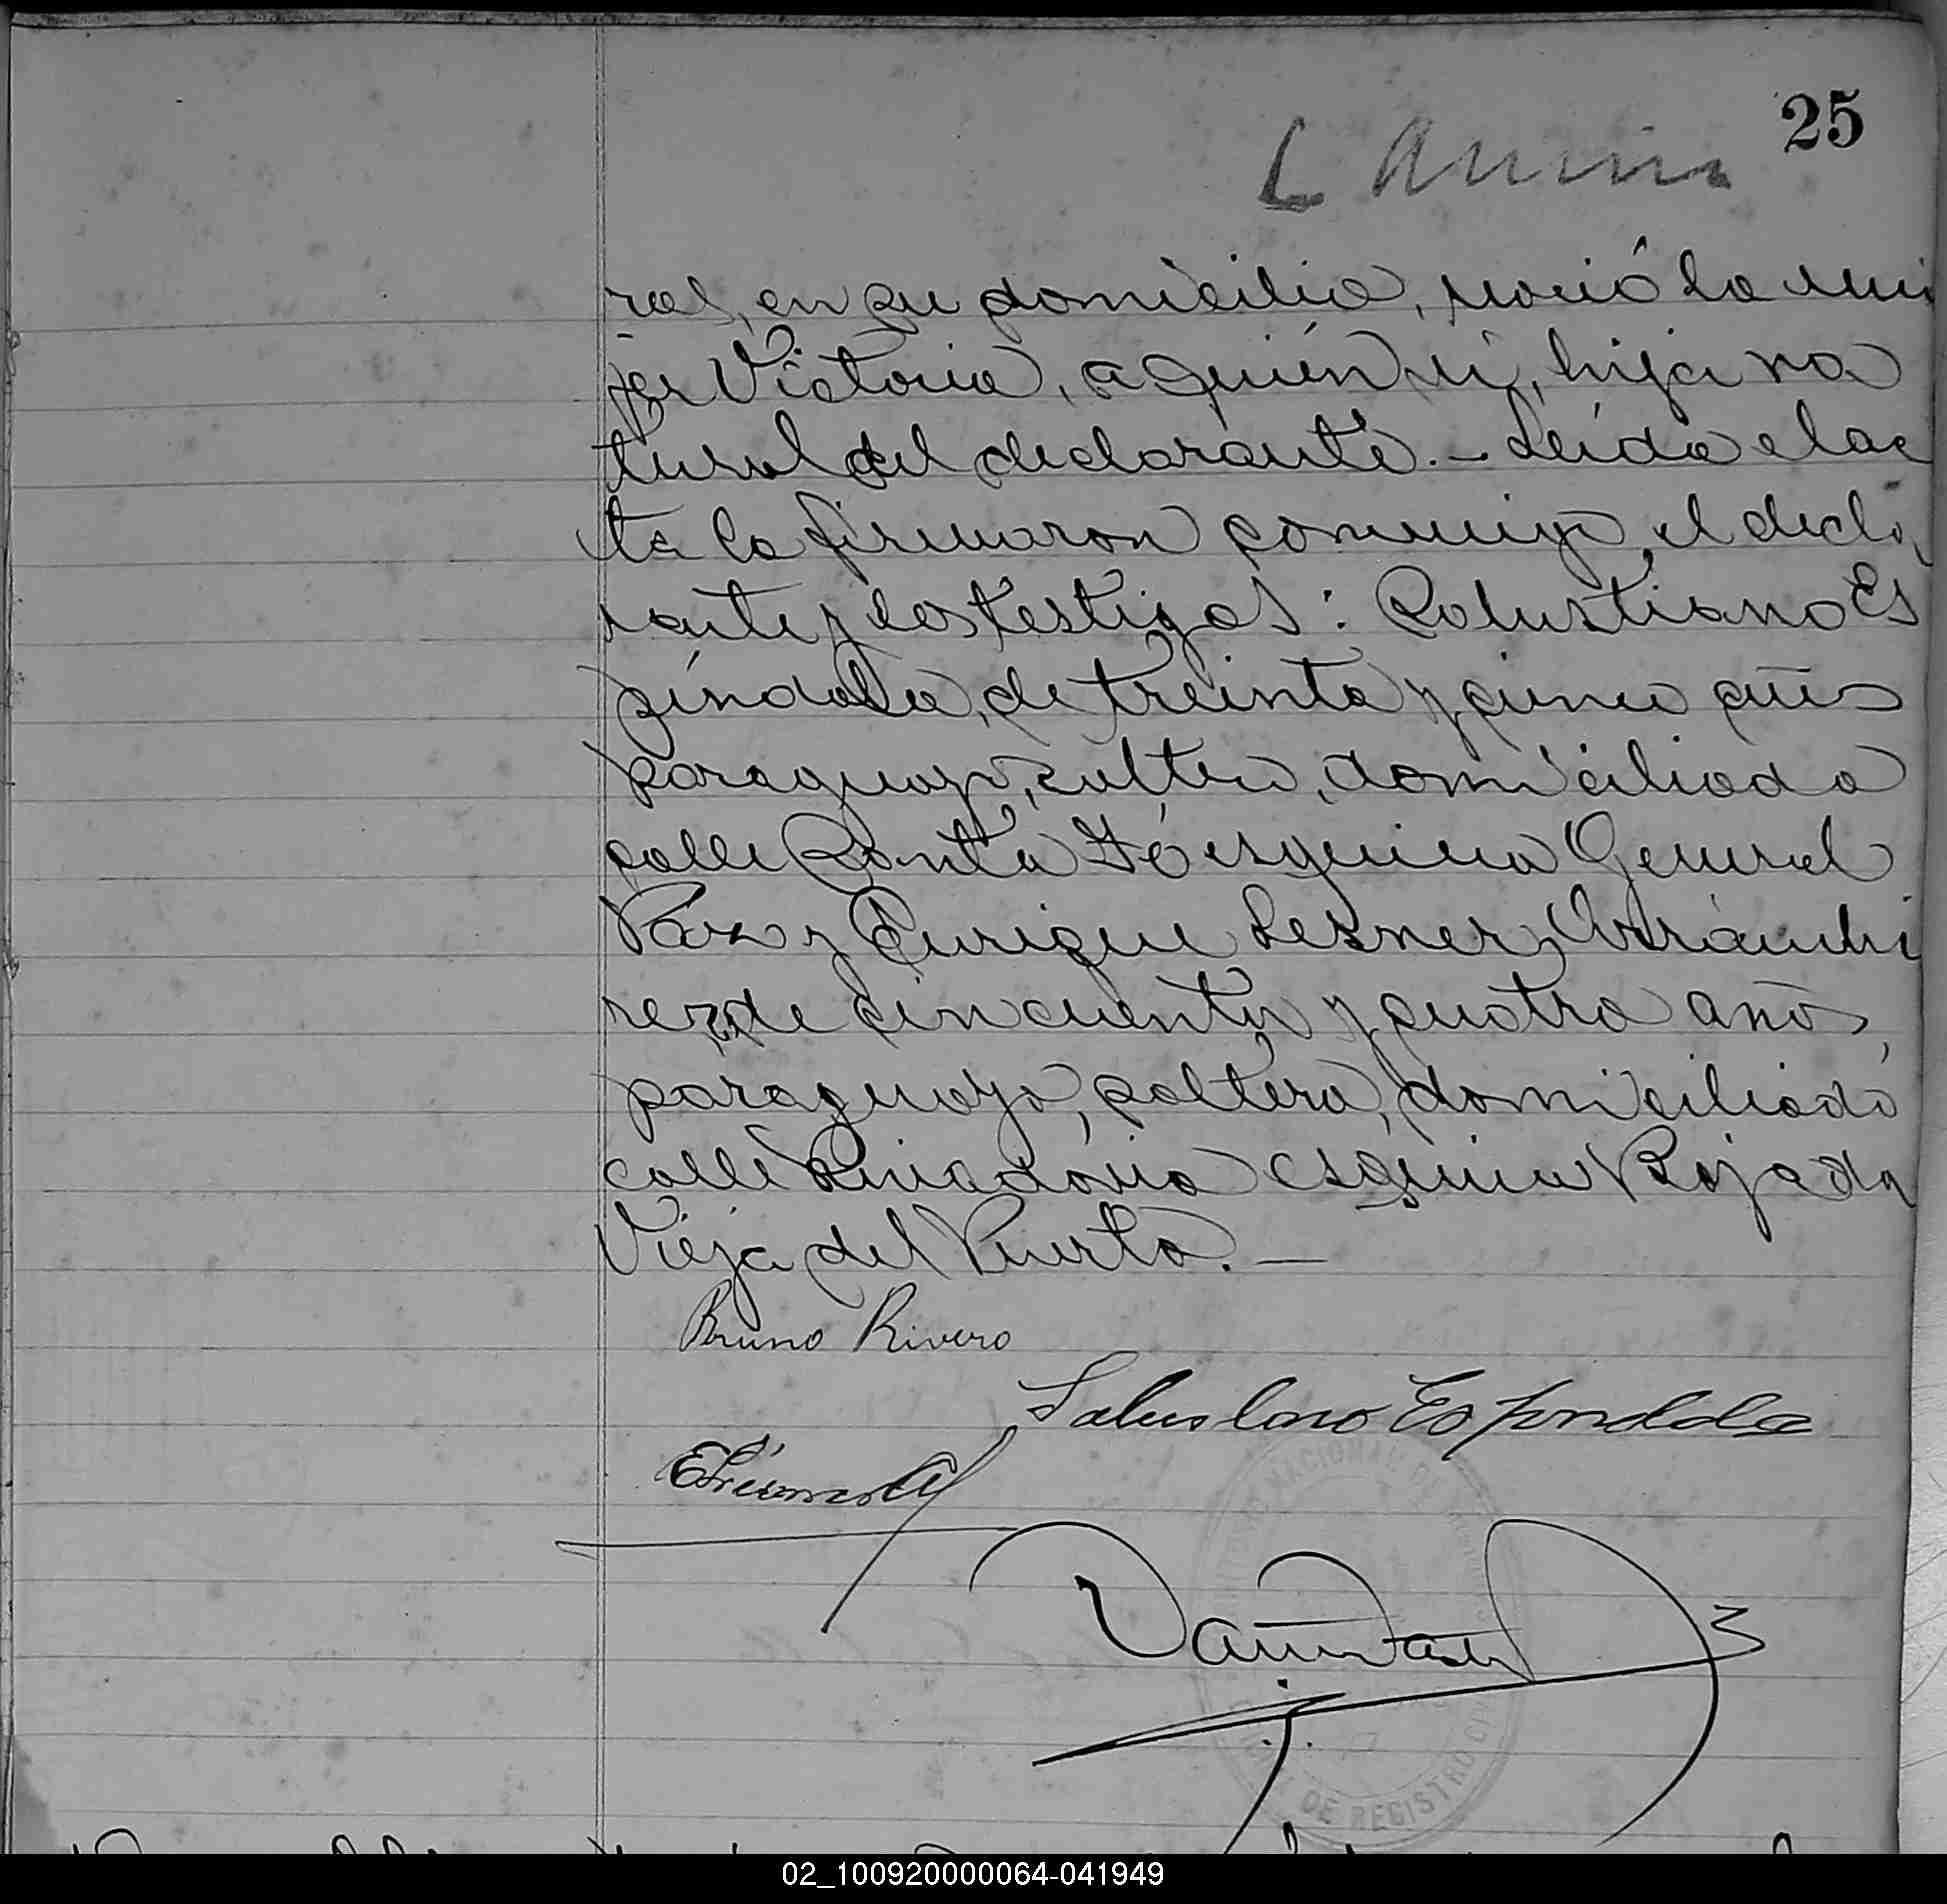 25
ral, en su domicilio, nació la mu
jer Victoria, a quien ví, hija na
tural del declarante.- Leída el ac
ta la firmaron conmigo, el decla
rante y los testigos: Salustiano Es
píndola, de treinta y cinco años
paraguayo, soltero, domiciliado
calle Santa Fé esquina General
Paz y Enrique Lesner
rez de cincuenta y cuatro años,
paraguayo, soltero, domiciliado
calle Rivadavia esquina Bajada
Vieja del Puerto.—
Bruno Rivero
Salustiano Espindola
NACIONAL DE
DE REGISTRO CIVIL
02_100920000064-041949